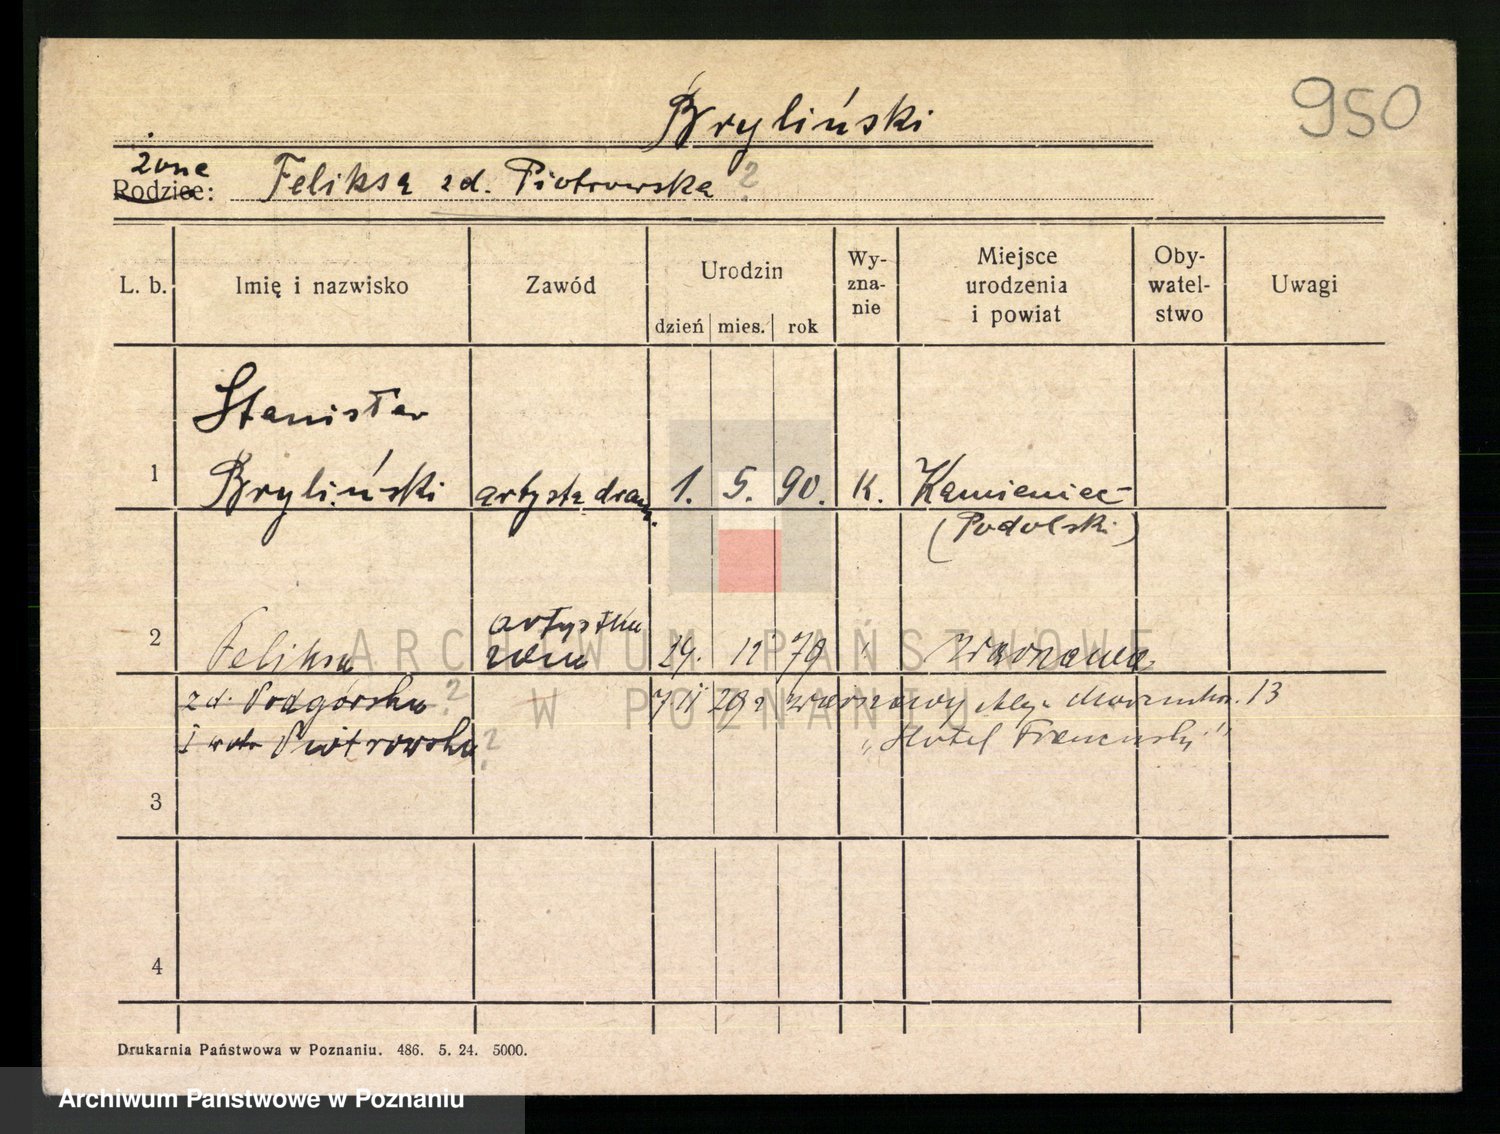 Bryliński
950
żona
Rodzice: Feliksa zd. Piotrowska ?
L. b. Imię i nazwisko Zawód Urodzin dzień mies. rok Wy-zna-nie Miejsce urodzenia i powiat Oby-watel-stwo Uwagi
Stanisław
1 Bryliński artysta dram. 1. 5. 90. K. Kamieniec
(Podolski)
artystka
2 Feliksa żona 24. 12 79 " Warszawa
zd. Podgórska ? 7 II 29 z Warszawy Al. Marcinkow. 13
I voto Piotrowska ? "Hotel Francuski"
3
4
Drukarnia Państwowa w Poznaniu. 486. 5. 24. 5000.
ARCHIWUM PAŃSTWOWE
W POZNANIU
Archiwum Państwowe w Poznaniu